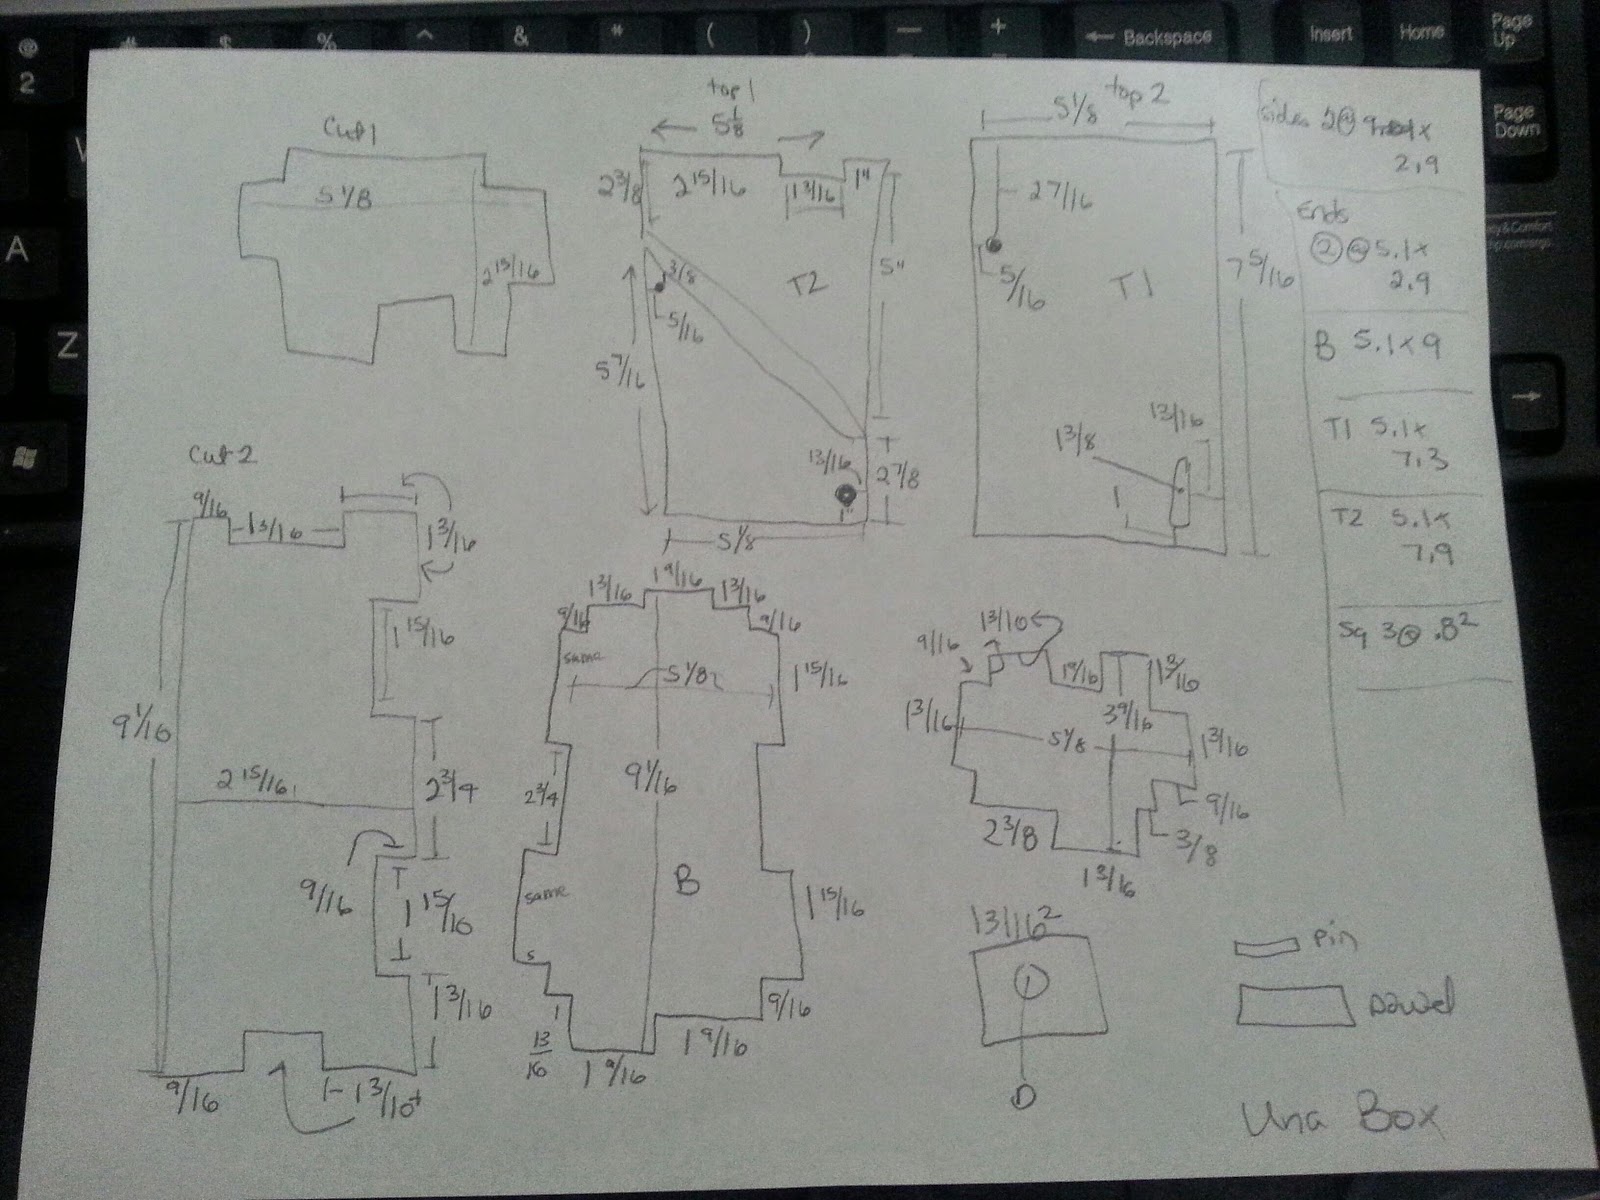 @
2
#
$
%
^
&
*
(
)
—
+
← Backspace
Insert
Home
Page
Up
Page
Down
A
Z
→
Cut 1
5 1/8
2 15/16
top 1
5 1/8
2 3/8
2 15/16
1 3/16
1"
T2
5"
1 3/8
5/16
5 7/16
13/16
2 7/8
1"
5 1/8
top 2
5 1/8
2 7/16
5/16
T1
7 5/16
13/16
1 3/8
1
sides 2@
2,9
Ends
② @ 5.1x
2,9
B 5.1x9
T1 5.1x
7,3
T2 5.1x
7,9
Sq 3@ .8²
Cut 2
9/16
1 3/16
1 3/16
1 15/16
9 1/16
2 15/16
2 3/4
9/16
1 15/16
1 3/16
9/16
1 3/16
1 3/16
1 9/16
1 3/16
9/16
9/16
same
5 1/8
1 15/16
2 3/4
9 1/16
same
B
1 15/16
s
9/16
13/16
1 9/16
1 9/16
9/16
1 9/16
1 3/16
1 3/16
3 9/16
5 1/8
1 3/16
9/16
2 3/8
3/8
1 3/16
13/16²
D
pin
Una Box